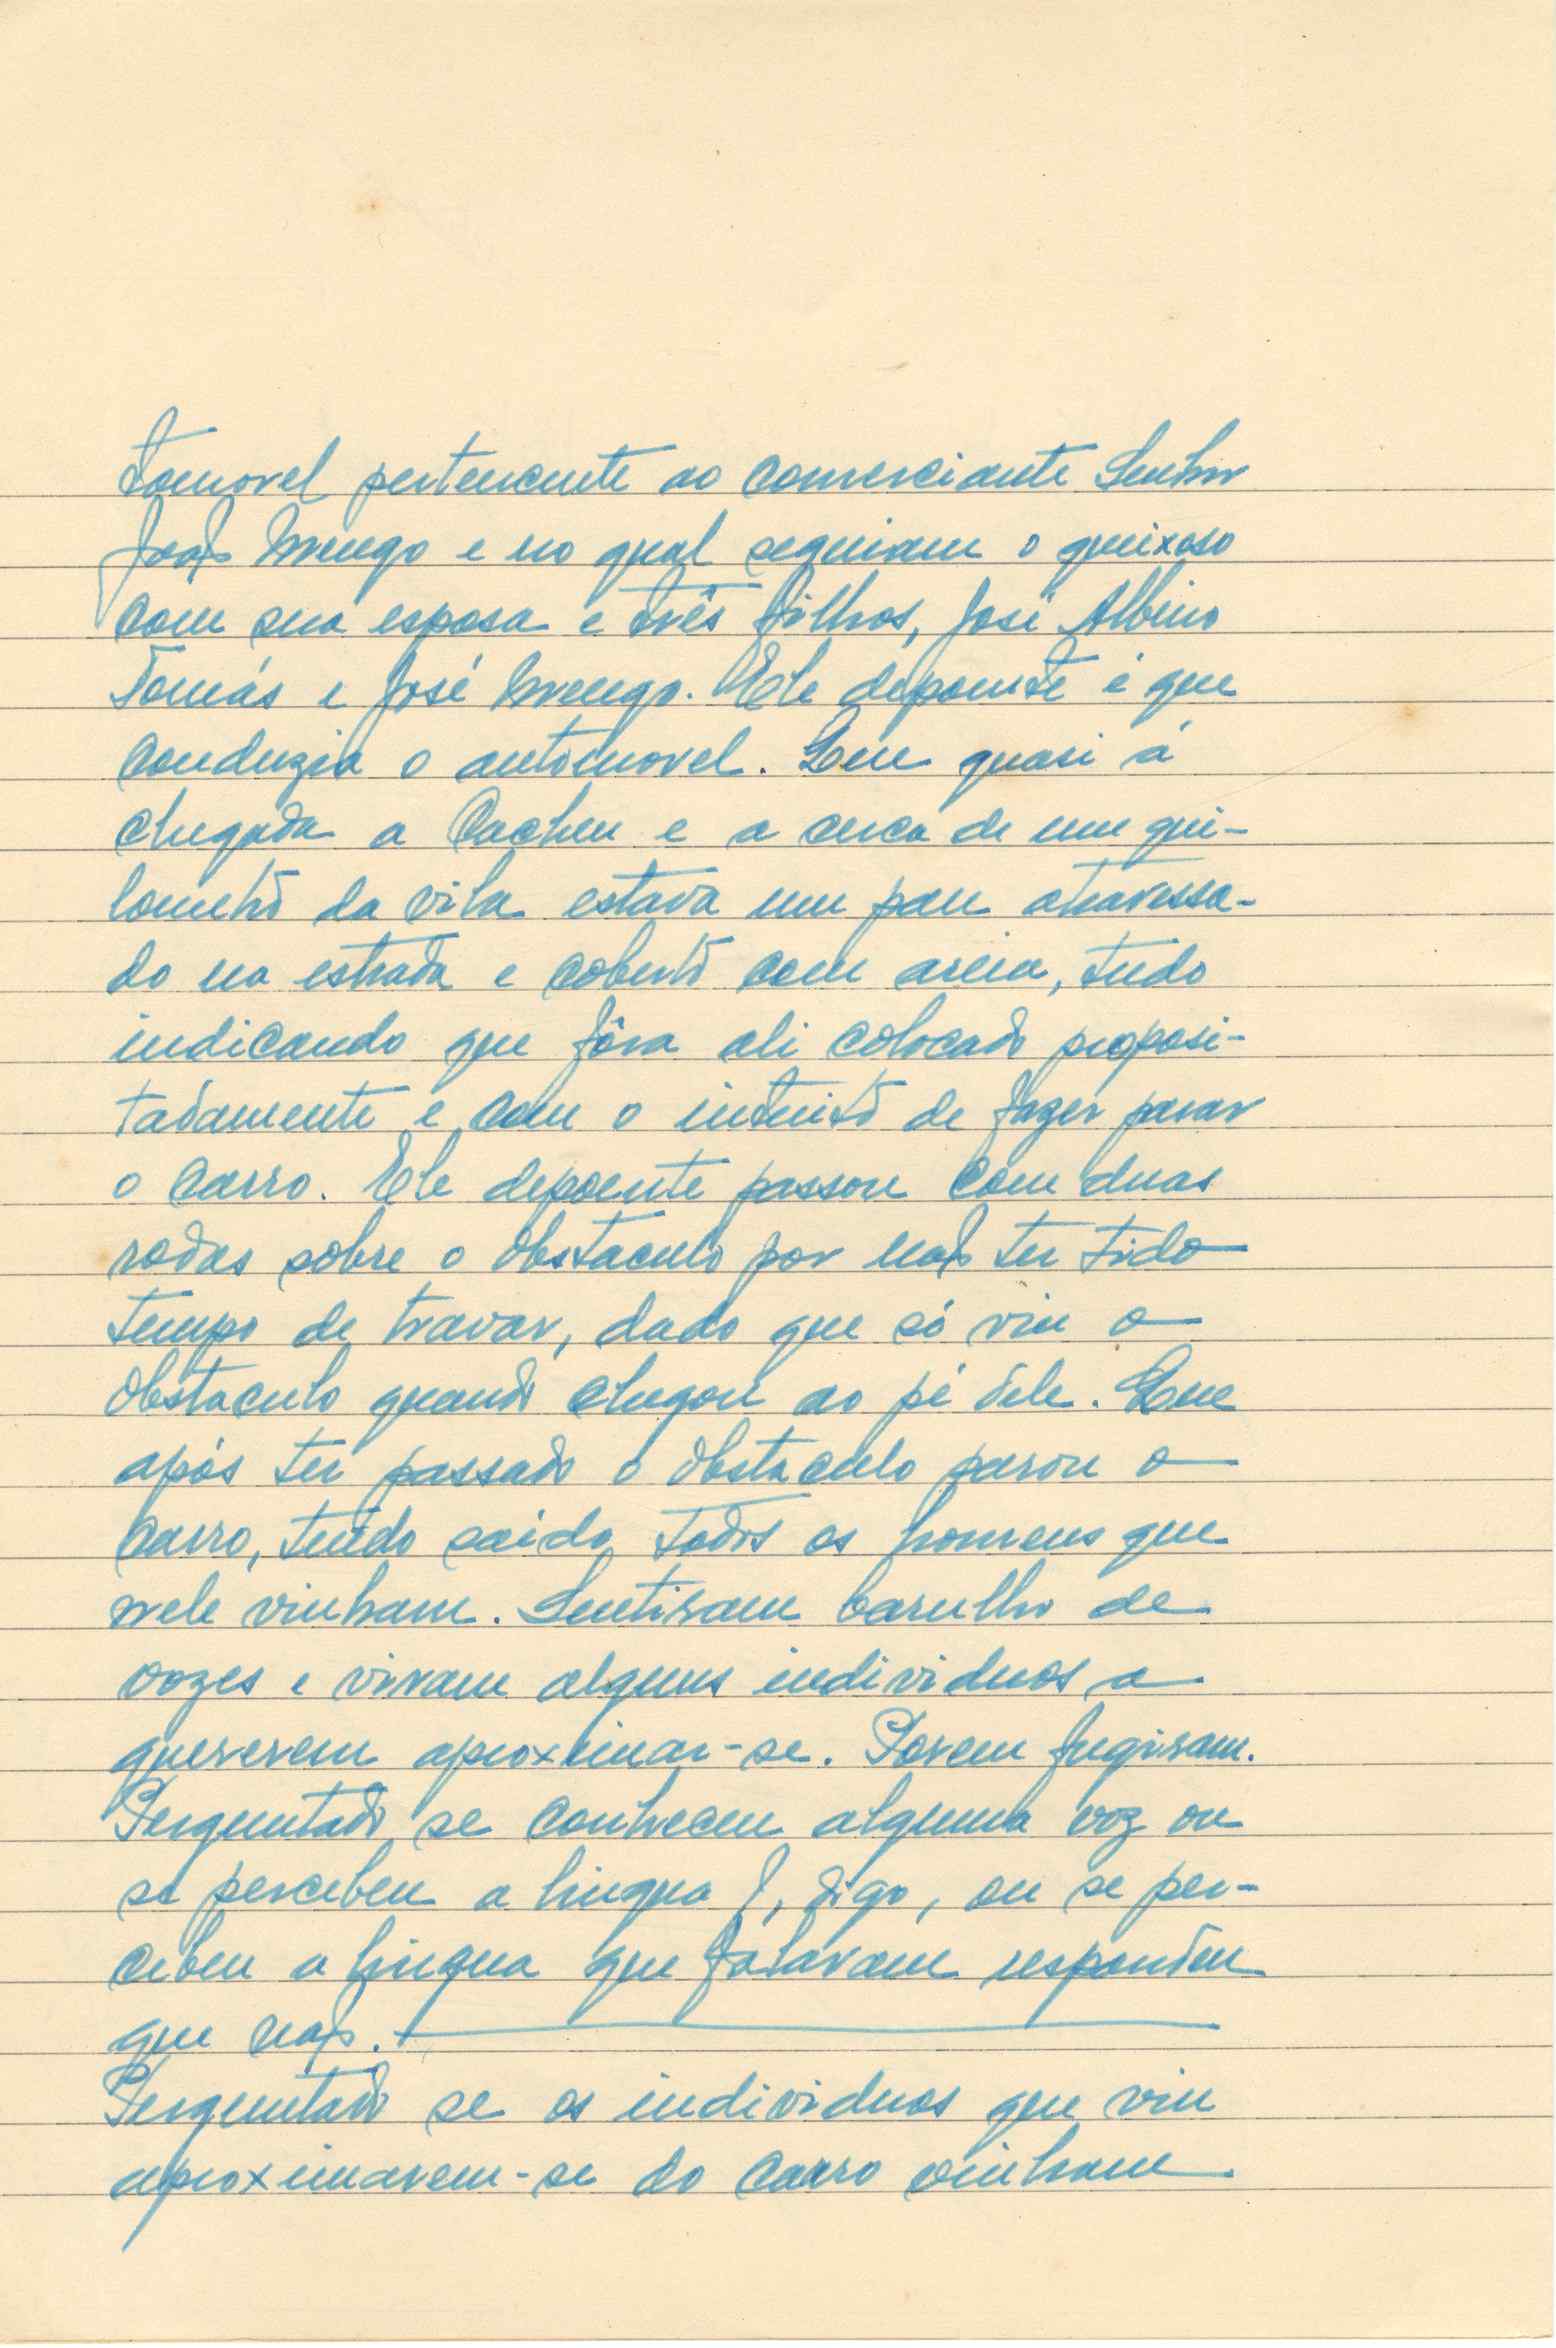 tomovel pertencente ao comerciante Senhor
João e no qual seguiam o queixoso
com sua esposa e três filhos, José Albino
Tomás e José. Ele depoente é que
conduzia o automovel. Que quasi á
chegada a Cacheu e a cerca de um qui-
lometro da vila estava um pau atravessa-
do na estrada e coberto com areia, tudo
indicando que fôra ali colocado proposi-
tadamente e com o intuito de fazer parar
o carro. Ele depoente passou com duas
rodas sobre o obstaculo por não ter tido
tempo de travar, dado que só viu o
obstaculo quando chegou ao pé dele. Que
após ter passado o obstaculo parou o
carro, tendo saído todos os homens que
nele vinham. Sentiram barulho de
vozes e viram alguns individuos a
quererem aproximar-se. Porem fugiram.
Perguntado se conheceu alguma voz ou
se percebeu a lingua f, digo, ou se per-
cebeu a lingua que falavam respondeu
que não.
Perguntado se os individuos que viu
aproximarem-se do carro vinham